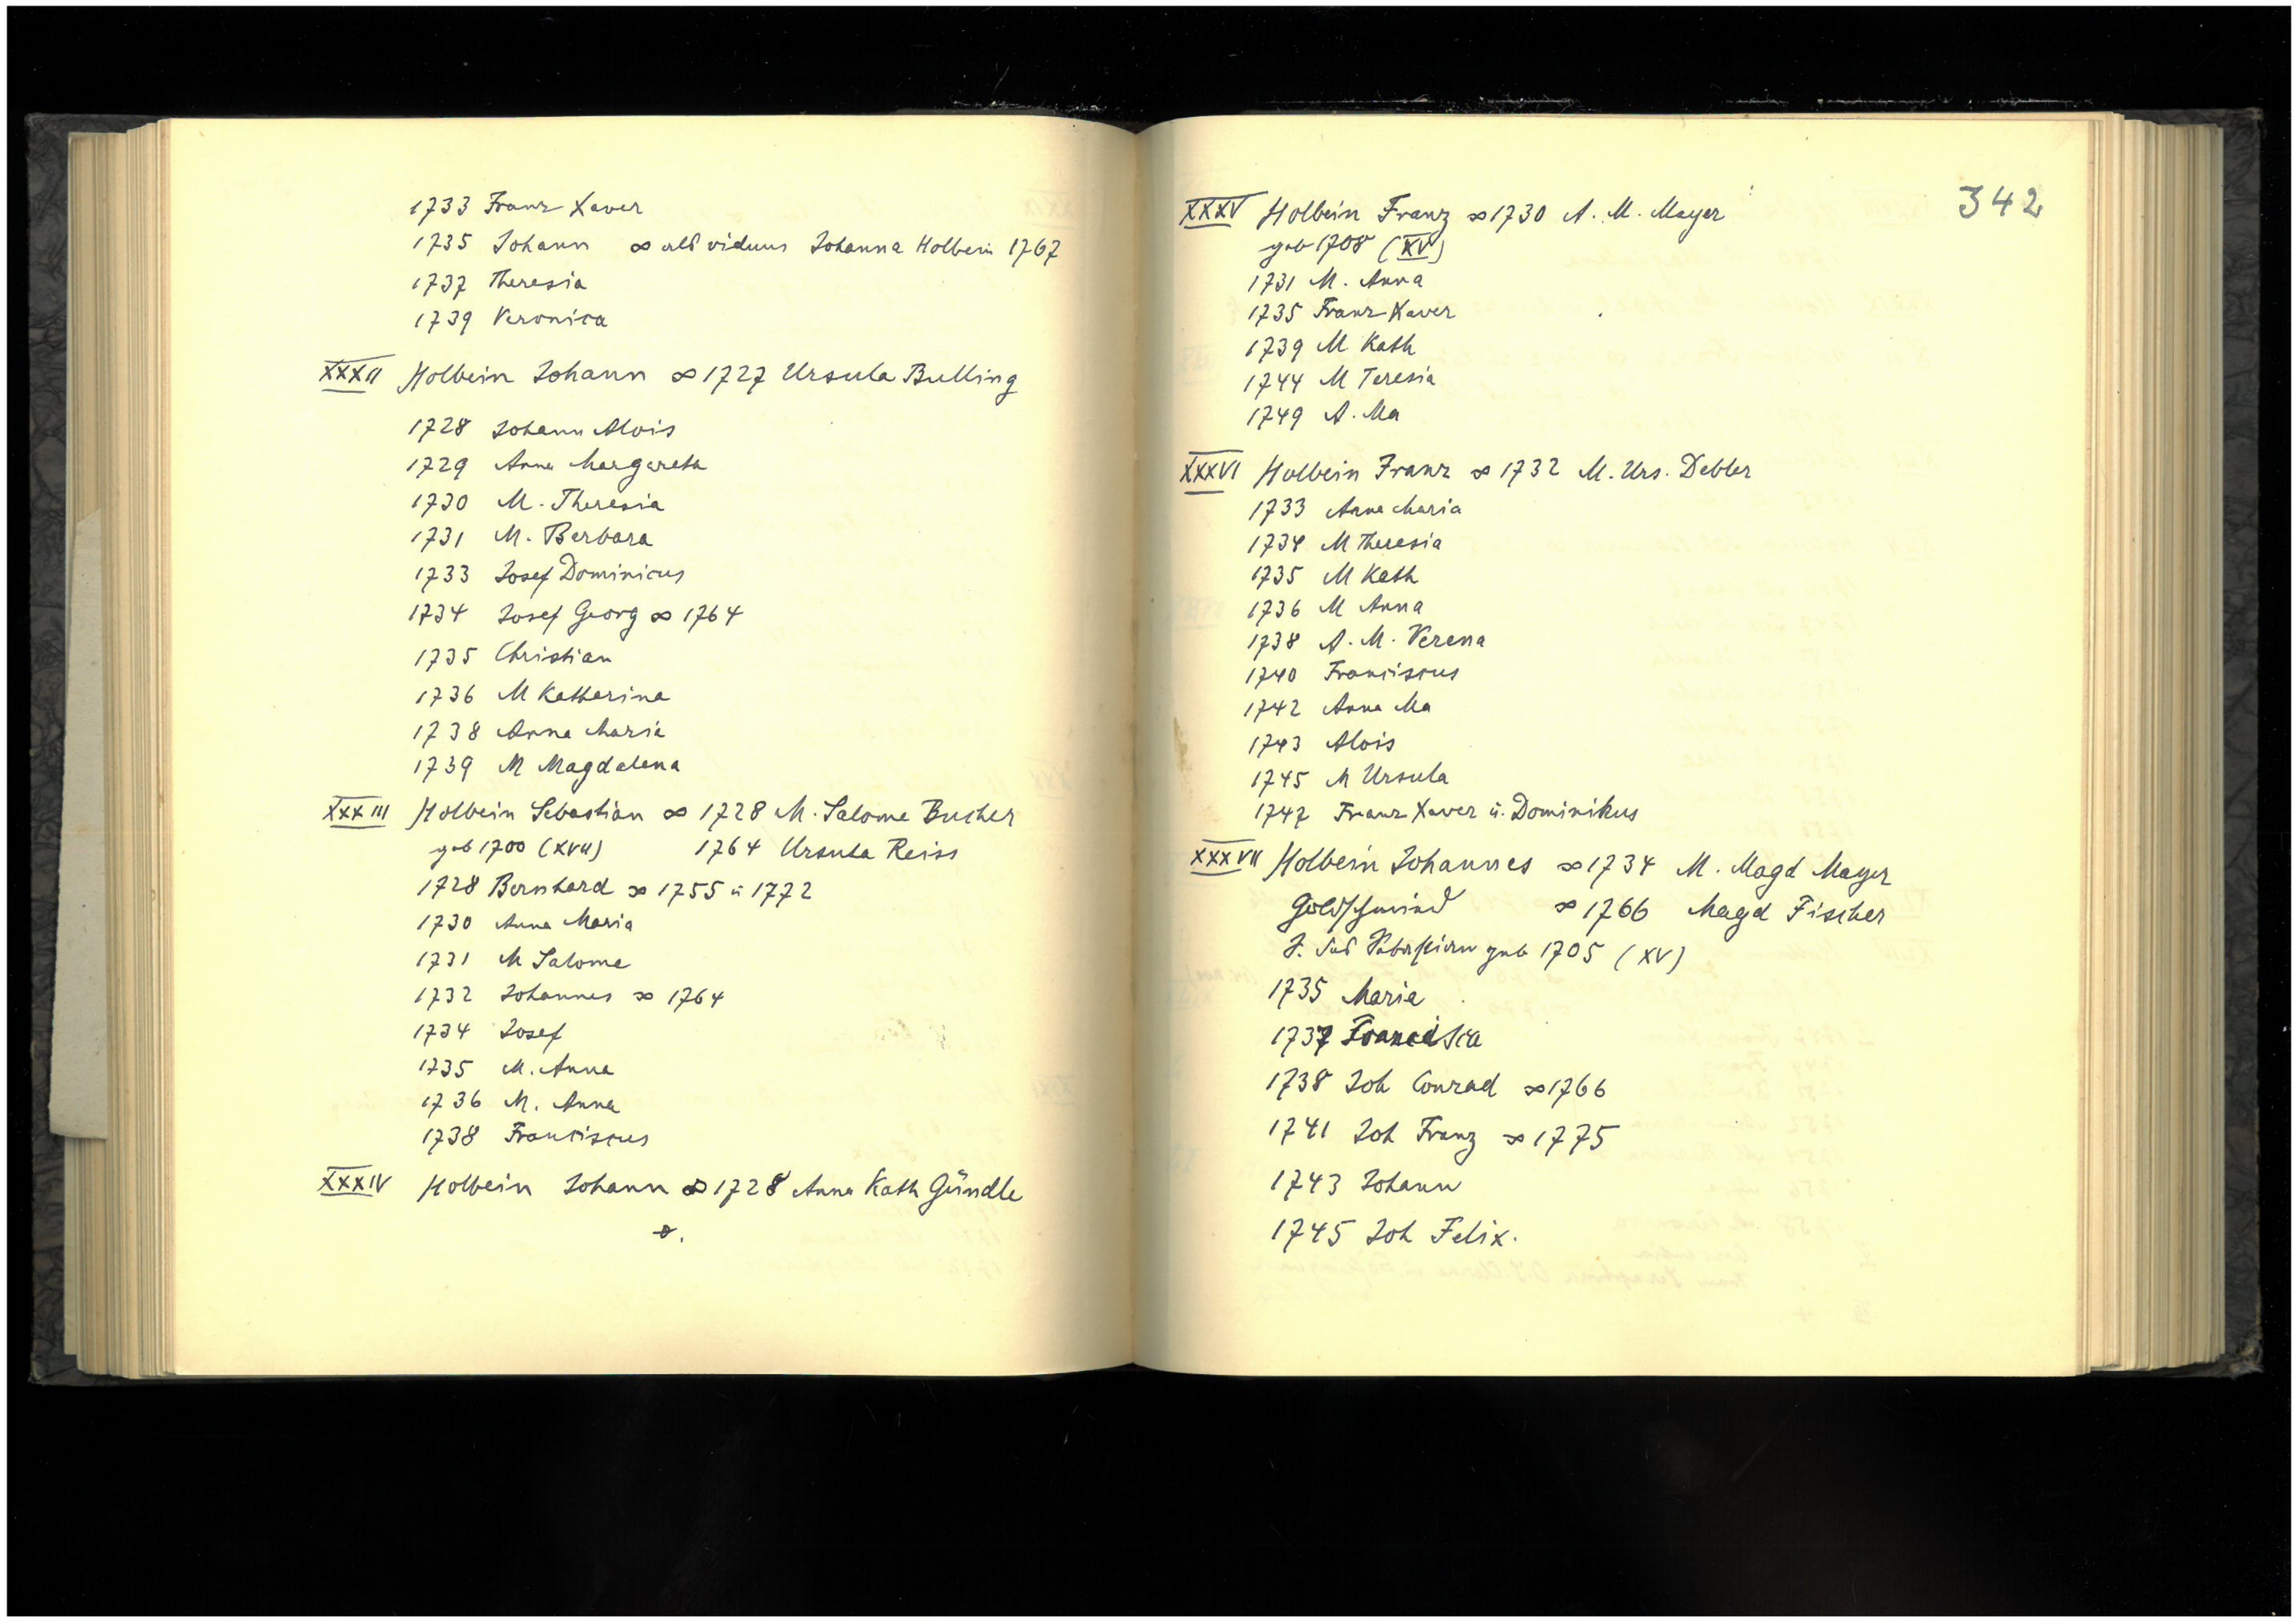 1733 Franz Xaver
1735 Johann ∞ als viduus Johanna Holbein 1767
1737 Theresia
1739 Veronica
XXXII Holbein Johann ∞ 1727 Ursula Bulling
1728 Johann Alois
1729 Anna Margareta
1730 M. Theresia
1731 M. Barbara
1733 Josef Dominicus
1734 Josef Georg ∞ 1764
1735 Christian
1736 M Katharina
1738 Anna Maria
1739 M Magdalena
XXXIII Holbein Sebastian ∞ 1728 M. Salome Bucher
geb 1700 (XVII) 1764 Ursula Reiss
1728 Bernhard ∞ 1755 u 1772
1730 Anna Maria
1731 M Salome
1732 Johannes ∞ 1764
1734 Josef
1735 M. Anna
1736 M. Anna
1738 Franciscus
XXXIV Holbein Johann ∞ 1728 Anna Kath Gündle
342
XXXV Holbein Franz ∞ 1730 A. M. Mayer
geb 1708 (XV)
1731 M. Anna
1735 Franz Xaver
1739 M Kath
1744 M Teresia
1749 A. Ma
XXXVI Holbein Franz ∞ 1732 M. Urs. Debler
1733 Anna Maria
1734 M Theresia
1735 M Kath
1736 M Anna
1738 A. M. Verena
1740 Franciscus
1742 Anna Ma
1743 Alois
1745 M Ursula
1747 Franz Xaver u. Dominikus
XXXVII Holbein Johannes ∞ 1734 M. Magd Mayer
Goldschmied ∞ 1766 Magd Fischer
S. des Sebastian geb 1705 (XV)
1735 Maria
1737 Francisca
1738 Joh Conrad ∞ 1766
1741 Joh Franz ∞ 1775
1743 Johann
1745 Joh Felix.